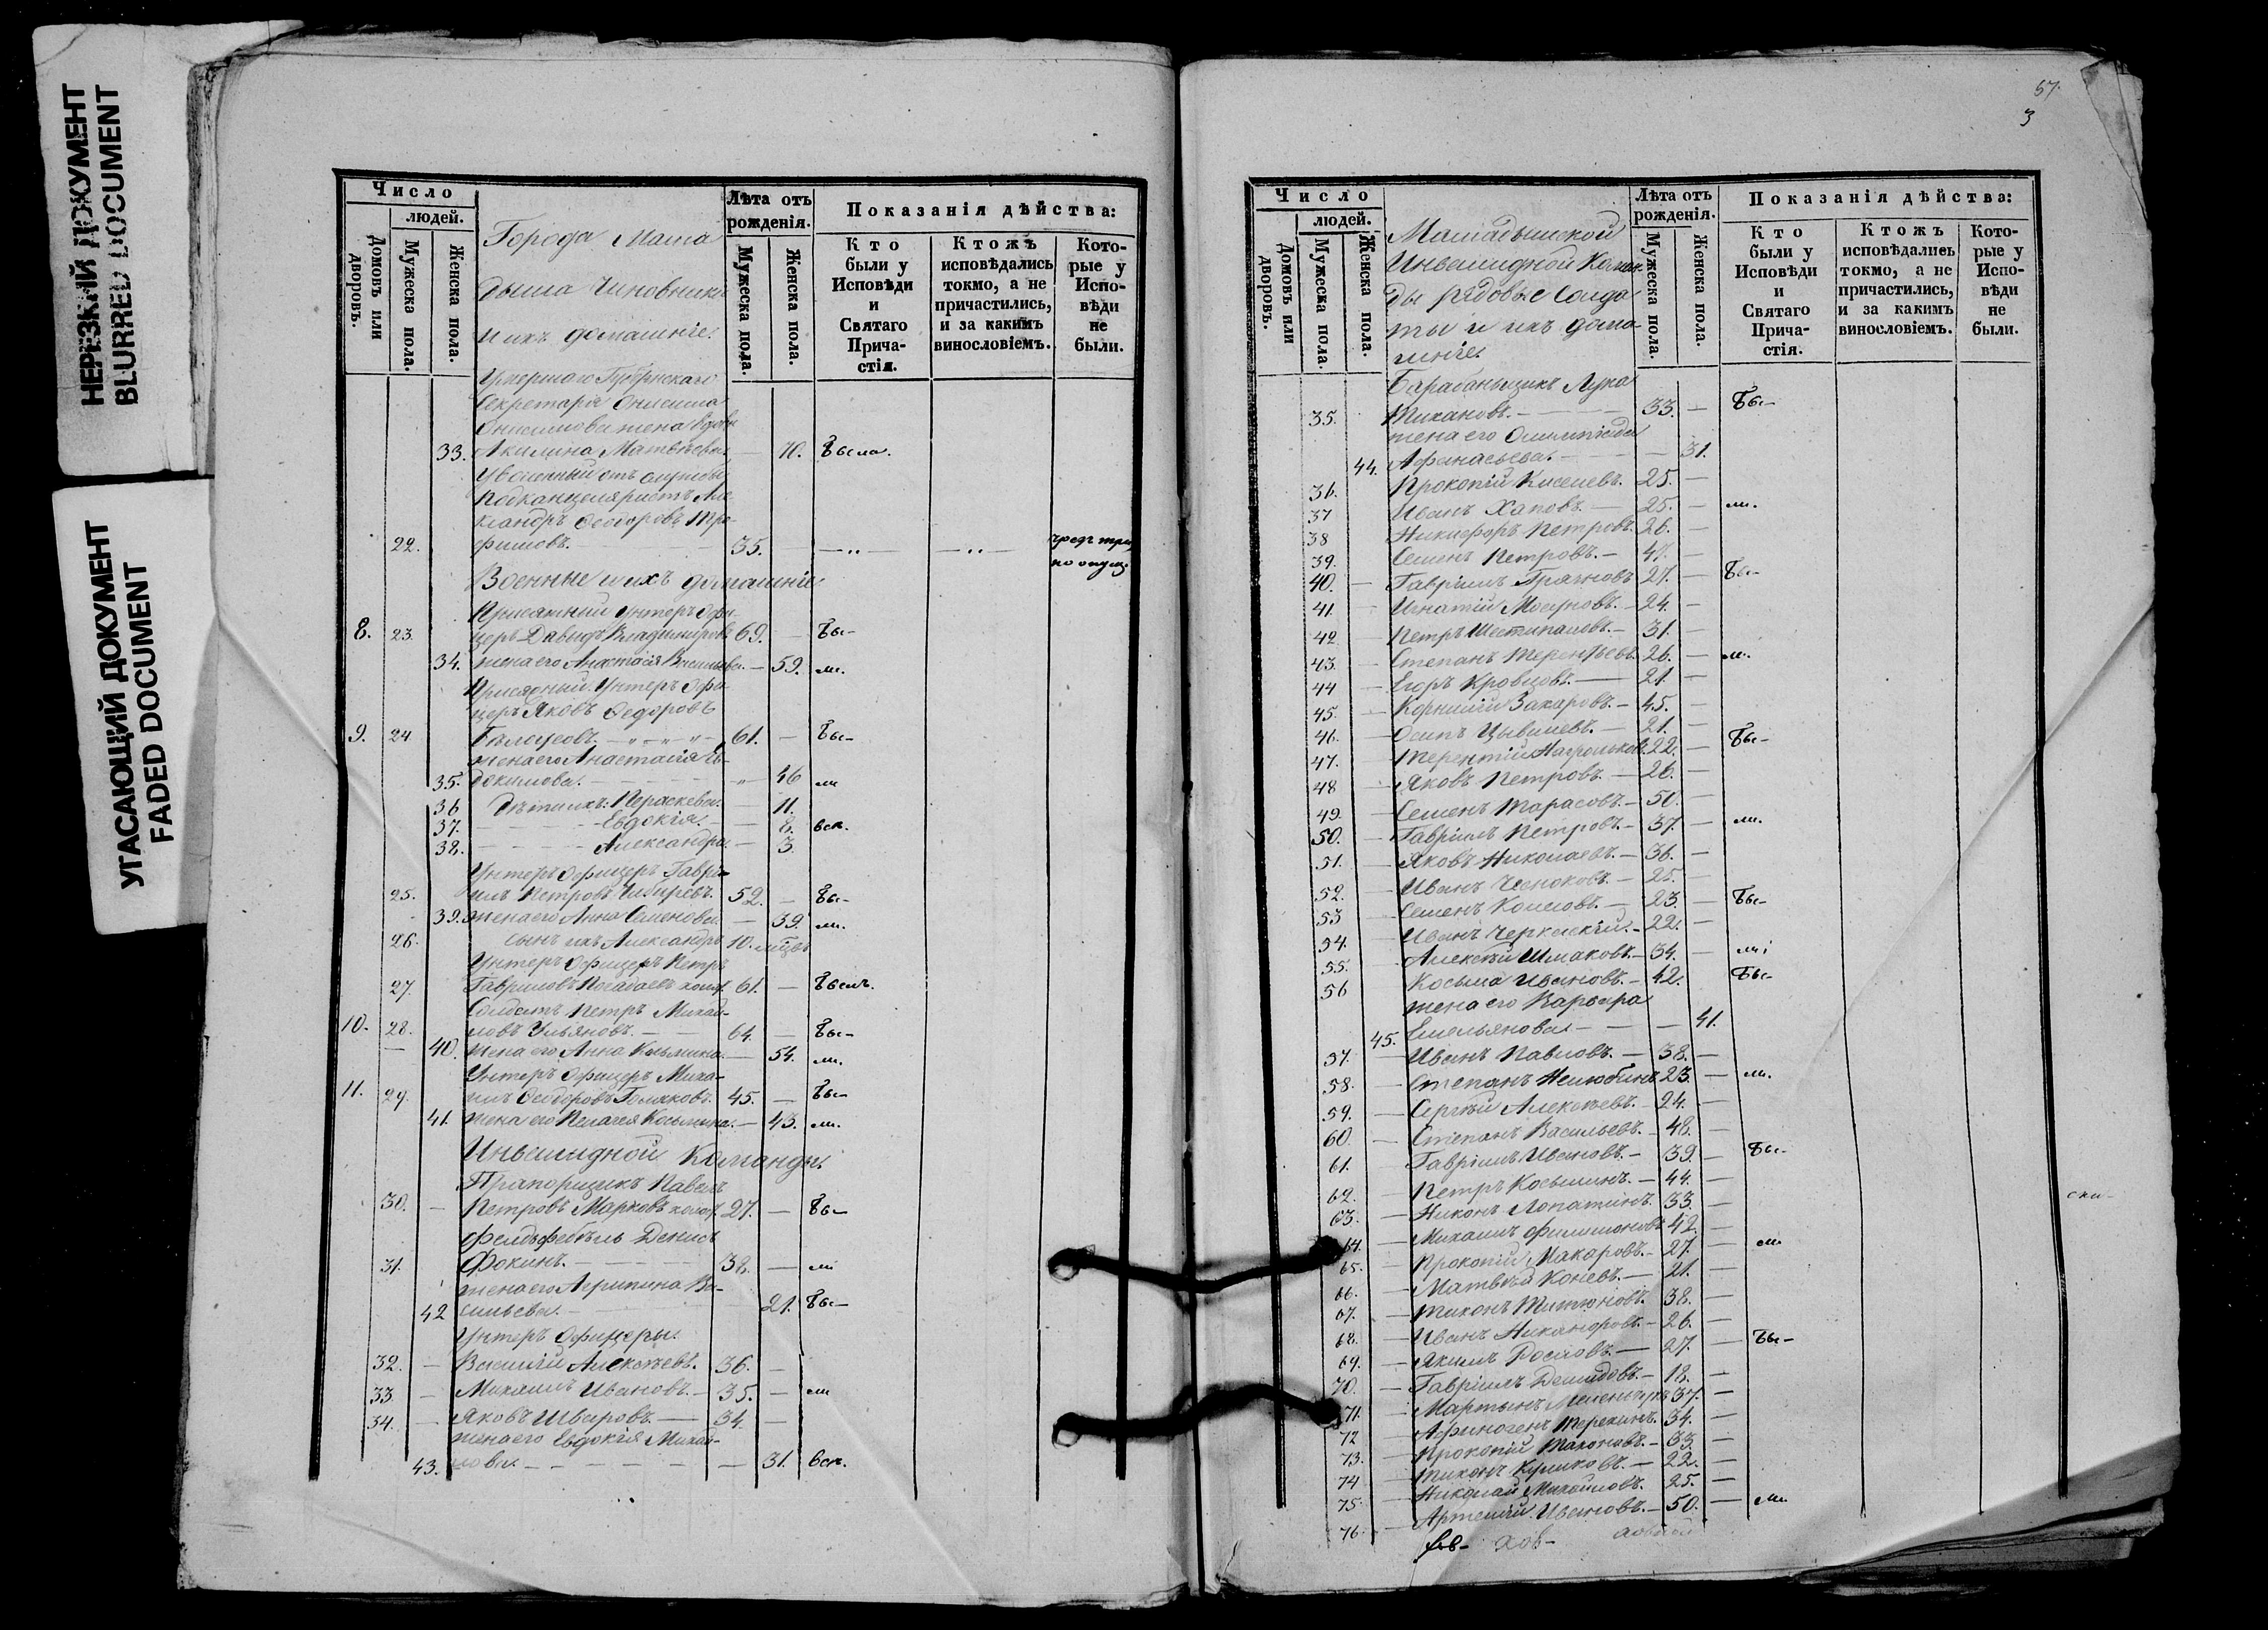 НЕРЕЗКИЙ ДОКУМЕНТ
BLURRED DOCUMENT
УГАСАЮЩИЙ ДОКУМЕНТ
FADED DOCUMENT
Число
людей.
Домовъ или дворовъ.
Мужеска пола.
Женска пола.
Лѣта отъ рожденія.
Мужеска пола.
Женска пола.
Показанія дѣйства:
Кто были у Исповѣди и Святаго Причастія.
Ктожъ исповѣдались токмо, а не причастились, и за какимъ винословіемъ.
Которые у Исповѣди не были.
Города Мама
дыша Чиновники
и ихъ домашніе.
Умершаго Губернскаго
Секретаря Онисима
Онисимова жена вдова
33. Акилина Матвѣева — 70. Была.
Уволенный отъ службы
Подканцеляристъ Але
ксандръ Ѳеодоровъ Тро-
22. фимовъ. — 35. — „ — — „ —
Военные и ихъ домашніе
Присяжный Унтеръ Офи
8. 23. церъ Давыдъ Владимировъ 69. — Бы-
34. жена его Анастасія Васильева. — 59. ли.
Присяжный Унтеръ Офи-
церъ Яковъ Ѳедоровъ
9. 24 61. — Бы-
жена его Анастасія Ев-
35. докимова. — 46 ли
36 Дѣти ихъ: Параскева. — 11.
37. Евдокія. — 8. всѣ.
38. Александра — 3.
Унтеръ Офицеръ Гаврі-
25. илъ Петровъ 52. — Бы-
39. жена его Анна Семенова. — 39. ли.
26. сынъ ихъ Александръ 10.
Унтеръ Офицеръ Петръ
27. Гавриловъ 61. — Былъ.
Солдатъ Петръ Михай-
10. 28. ловъ Ульяновъ. — 64. — Бы-
40. жена его Анна Козьмина. — 54. ли.
Унтеръ Офицеръ Миха-
11. 29. илъ Ѳеодоровъ Голяковъ. 45. — Бы-
41. жена его Пелагея Козьмина. — 43. ли.
Инвалидной Команды.
Прапорщикъ Павелъ
30. — Петровъ Марковъ холос. 27. — Бы-
Фельдфебель Денисъ
31. Фокинъ. — 38. — ли
жена его Агрипина Ва-
42 сильева. — 21. Бы-
Унтеръ Офицеры.
32. — Василій Алексѣевъ. 36. —
33 — Михаилъ Ивановъ. — 35. — ли
34. — Яковъ Уваровъ. — 34. —
жена его Евдокія Михай-
43. лова. — 31. всѣ.
57.
3
Число
людей.
Домовъ или дворовъ.
Мужеска пола.
Женска пола.
Лѣта отъ рожденія.
Мужеска пола.
Женска пола.
Показанія дѣйства:
Кто были у Исповѣди и Святаго Причастія.
Ктожъ исповѣдались токмо, а не причастились, и за какимъ винословіемъ.
Которые у Исповѣди не были.
Мамадышской
Инвалидной Коман
ды рядовые Солда
ты и ихъ дома
шніе.
Барабанщикъ Лука
35. Тихановъ. — 33. — Бы-
жена его Олимпіада
44. Афанасьева. — 31.
36. Прокопій Киселевъ. 25. —
37 Иванъ Хаповъ. — 25. — ли.
38 Никифоръ Петровъ. 26. —
39. Семенъ Петровъ. — 47. —
40. — Гавріилъ Грачновъ 27. — Бы-
41. Игнатій Мосуновъ. — 24. —
42 — Петръ Шестипаловъ. — 31. —
43. — Степанъ Терентьевъ. 26. — ли.
44 — Егоръ Кровцовъ. — 21. —
45. — Корнилій Захаровъ. — 45. —
46. — Осипъ Цывилевъ. — 21. —
47. — Терентій 22. — Бы-
48 — Яковъ Петровъ. — 26. —
49. — Семенъ Тарасовъ. — 50. —
50. — Гавріилъ Петровъ. — 37. — ли.
51. — Яковъ Николаевъ. — 36. —
52. — Иванъ Чесноковъ. — 25. —
53 — Семенъ Комловъ. — 23. — Бы-
54. Иванъ Черкаскій. — 22. —
55. Алексѣй Шмаковъ. — 34. — ли:
56 Косьма Ивановъ. — 42. Бы-
жена его Варвара
45. Емельянова — 41.
57. — Иванъ Павловъ. — 38. —
58. — Степанъ Нелюбинъ 23. — ли.
59. — Сергѣй Алексѣевъ. — 24. —
60. — Степанъ Васильевъ. — 48. —
61. Гавріилъ Ивановъ. — 39. — Бы-
62. — Петръ Косьминъ. — 44. —
63. — Никонъ Лопатинъ. 33. —
64. — Михаилъ Филимоновъ 42. —
65. — Прокопій Макаровъ. — 27. — ли
66. — Матвѣй Коневъ. — 21. —
67. — Тихонъ Митюновъ. 38. —
68. — Иванъ Никаноровъ. — 26. —
69. — Якимъ Рословъ. — 27. — Бы-
70. — Гавріилъ Демидовъ. — 18. —
71. — Мартынъ 37. —
72 — Афиногенъ Терехинъ. 34. —
73. — Прокопій Тихоновъ. — 33. —
74 — Тихонъ Куликовъ. — 22. —
75. — Николай Михайловъ. 25. —
76. — Артемій Ивановъ. — 50. — ли.